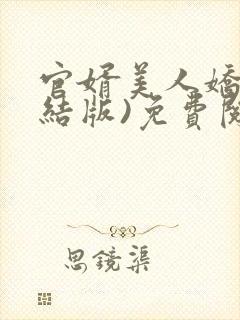 官婿美人嬌
結版)免費閱
思鏡渠